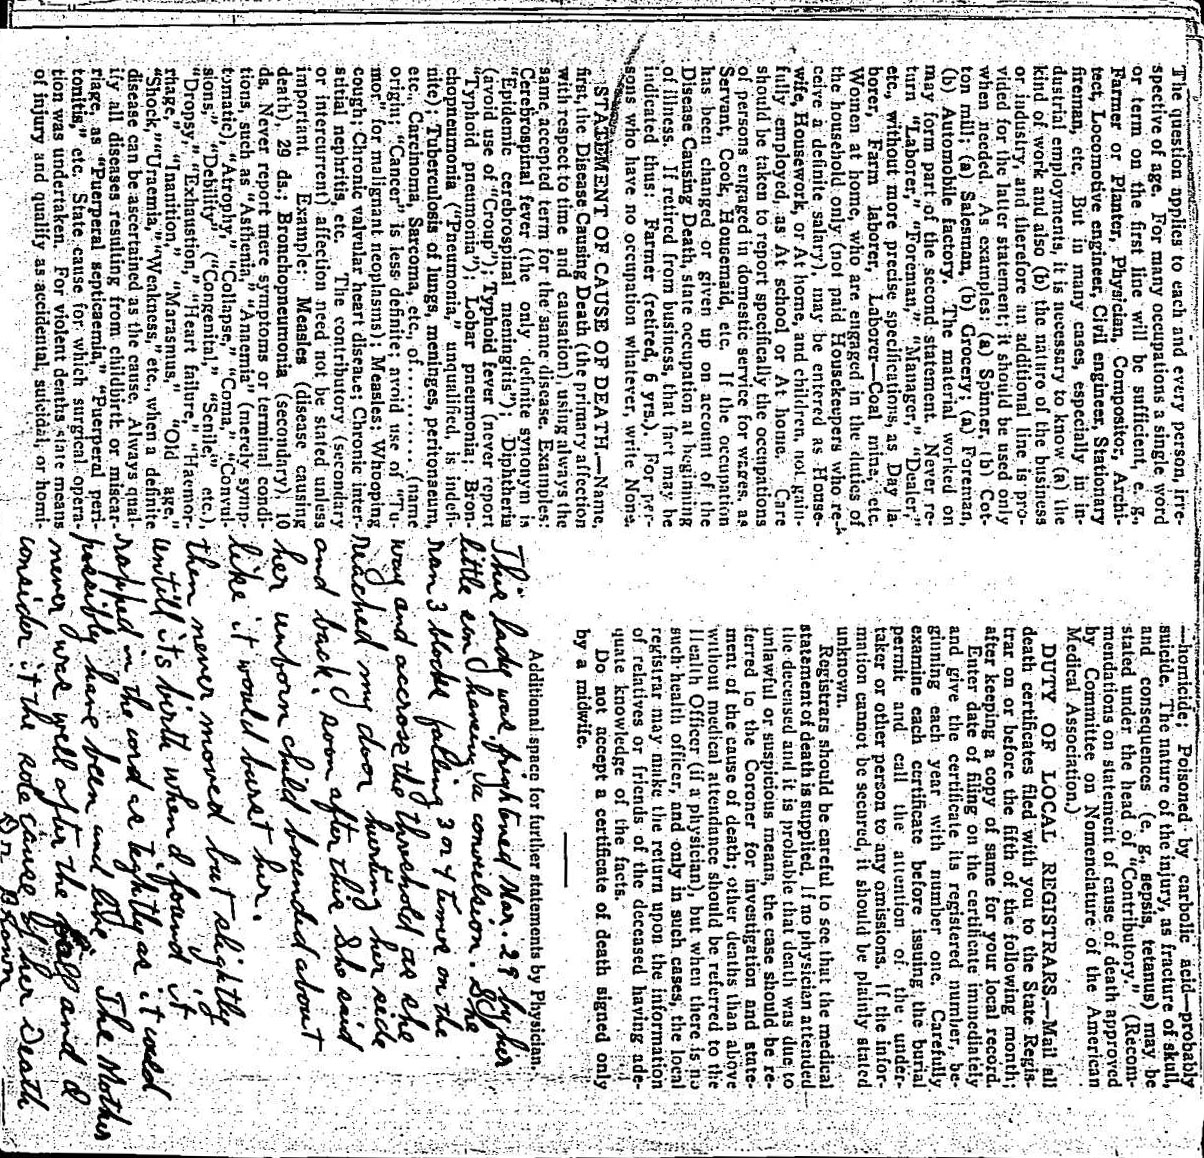 The question applies to each and every person, irre-
spective of age. For many occupations a single word
or term on the first line will be sufficient, e. g.,
Farmer or Planter, Physician, Compositor, Archi-
tect, Locomotive engineer, Civil engineer, Stationary
fireman, etc. But in many cases, especially in in-
dustrial employments, it is necessary to know (a) the
kind of work and also (b) the nature of the business
or industry, and therefore an additional line is pro-
vided for the latter statement; it should be used only
when needed. As examples: (a) Spinner, (b) Cot-
ton mill; (a) Salesman, (b) Grocery; (a) Foreman,
(b) Automobile factory. The material worked on
may form part of the second statement. Never re-
turn "Laborer," "Foreman," "Manager," "Dealer,"
etc., without more precise specifications, as Day la-
borer, Farm laborer, Laborer—Coal mine, etc.
Women at home, who are engaged in the duties of
the household only (not paid Housekeepers who re-
ceive a definite salary), may be entered as House-
wife, Housework, or At home, and children, not gain-
fully employed, as At school or At home. Care
should be taken to report specifically the occupations
of persons engaged in domestic service for wages, as
Servant, Cook, Housemaid, etc. If the occupation
has been changed or given up on account of the
Disease Causing Death, state occupation at beginning
of illness. If retired from business, that fact may be
indicated thus: Farmer (retired, 6 yrs.). For per-
sons who have no occupation whatever, write None.
STATEMENT OF CAUSE OF DEATH.—Name,
first, the Disease Causing Death (the primary affection
with respect to time and causation), using always the
same accepted term for the same disease. Examples:
Cerebrospinal fever (the only definite synonym is
"Epidemic cerebrospinal meningitis"); Diphtheria
(avoid use of "Croup"); Typhoid fever (never report
"Typhoid pneumonia"); Lobar pneumonia; Bron-
chopneumonia ("Pneumonia," unqualified, is indefi-
nite); Tuberculosis of lungs, meninges, peritonaeum,
etc., Carcinoma, Sarcoma, etc., of.......... (name
origin; "Cancer" is less definite; avoid use of "Tu-
mor" for malignant neoplasms); Measles; Whooping
cough; Chronic valvular heart disease; Chronic inter-
stitial nephritis, etc. The contributory (secondary
or intercurrent) affection need not be stated unless
important. Example: Measles (disease causing
death), 29 ds.; Bronchopneumonia (secondary), 10
ds. Never report mere symptoms or terminal condi-
tions, such as "Asthenia," "Anaemia" (merely symp-
tomatic), "Atrophy," "Collapse," "Coma," "Convul-
sions," "Debility" ("Congenital," "Senile," etc.),
"Dropsy," "Exhaustion," "Heart failure," "Haemor-
rhage," "Inanition," "Marasmus," "Old age,"
"Shock," "Uraemia," "Weakness," etc., when a definite
disease can be ascertained as the cause. Always qual-
ify all diseases resulting from childbirth or miscar-
riage, as "Puerperal septicaemia," "Puerperal peri-
tonitis," etc. State cause for which surgical opera-
tion was undertaken. For violent deaths state means
of injury and qualify as accidental, suicidal, or homi-
—homicide; Poisoned by carbolic acid—probably
suicide. The nature of the injury, as fracture of skull,
and consequences (e. g., sepsis, tetanus) may be
stated under the head of "Contributory." (Recom-
mendations on statement of cause of death approved
by Committee on Nomenclature of the American
Medical Association.)
DUTY OF LOCAL REGISTRARS.—Mail all
death certificates filed with you to the State Regis-
trar on or before the fifth of the following month;
after keeping a copy of same for your local record.
Enter date of filing on the certificate immediately
and give the certificate its registered number, be-
ginning each year with number one. Carefully
examine each certificate before issuing the burial
permit and call the attention of the under-
taker or other person to any omissions. If the infor-
mation cannot be secured, it should be plainly stated
unknown.
Registrars should be careful to see that the medical
statement of death is supplied. If no physician attended
the deceased and it is probable that death was due to
unlawful or suspicious means, the case should be re-
ferred to the Coroner for investigation and state-
ment of the cause of death; other deaths than above
without medical attendance should be referred to the
Health Officer (if a physician), but when there is no
such health officer, and only in such cases, the local
registrar may make the return upon the information
of relatives or friends of the deceased having ade-
quate knowledge of the facts.
Do not accept a certificate of death signed only
by a midwife.
Additional space for further statements by Physician.
This lady was frightened Mar. 29 by her
little son having a convulsion. She
ran 3 blocks falling 3 or 4 times on the
way and accross the threshold as she
reached my door hurting her side
and back. Soon after this She said
her unborn child bounded about
like it would burst her.
then never moved but slightly
untill its birth when I found it
rapped in the cord as tightly as it could
possibly have been and live The Mother
never was well after the fall and I
consider it the sole cause of her Death
Dr Brown